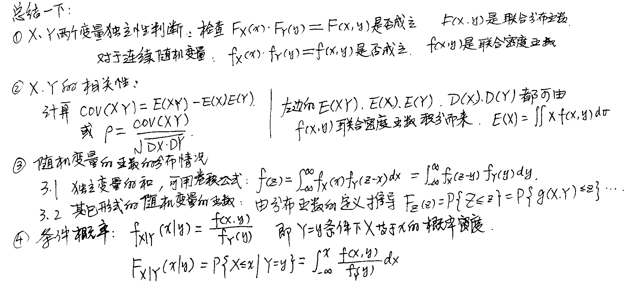 总结一下:
① X、Y两个变量独立性判断:检查 Fx(x)·FY(y)=F(x,y)是否成立 F(x,y)是联合分布函数
对于连续随机变量: fx(x)·fY(y)=f(x,y)是否成立. f(x,y)是联合密度函数
② X.Y的相关性:
计算 COV(XY)=E(XY)-E(X)E(Y). 左边的 E(XY). E(X). E(Y). D(X). D(Y) 都可由
或 ρ=COV(XY)/√DX·DY. f(x,y)联合密度函数积分而来. E(X)=∬x f(x,y)dσ
③ 随机变量的函数的分布情况
3.1 独立变量的和,可用卷积公式: f(z)=∫_{-∞}^{∞}fx(x)fY(z-x)dx =∫_{-∞}^{∞}fx(z-y)fY(y)dy.
3.2 其它形式的随机变量的函数:由分布函数的定义推导 Fz(z)=P{Z≤z}=P{g(X.Y)≤z}…
④ 条件概率: fX|Y(x|y)=f(x.y)/fY(y) 即 Y=y条件下X关于x的概率密度.
FX|Y(x|y)=P{X≤x|Y=y}=∫_{-∞}^{x} f(x,y)/fY(y) dx